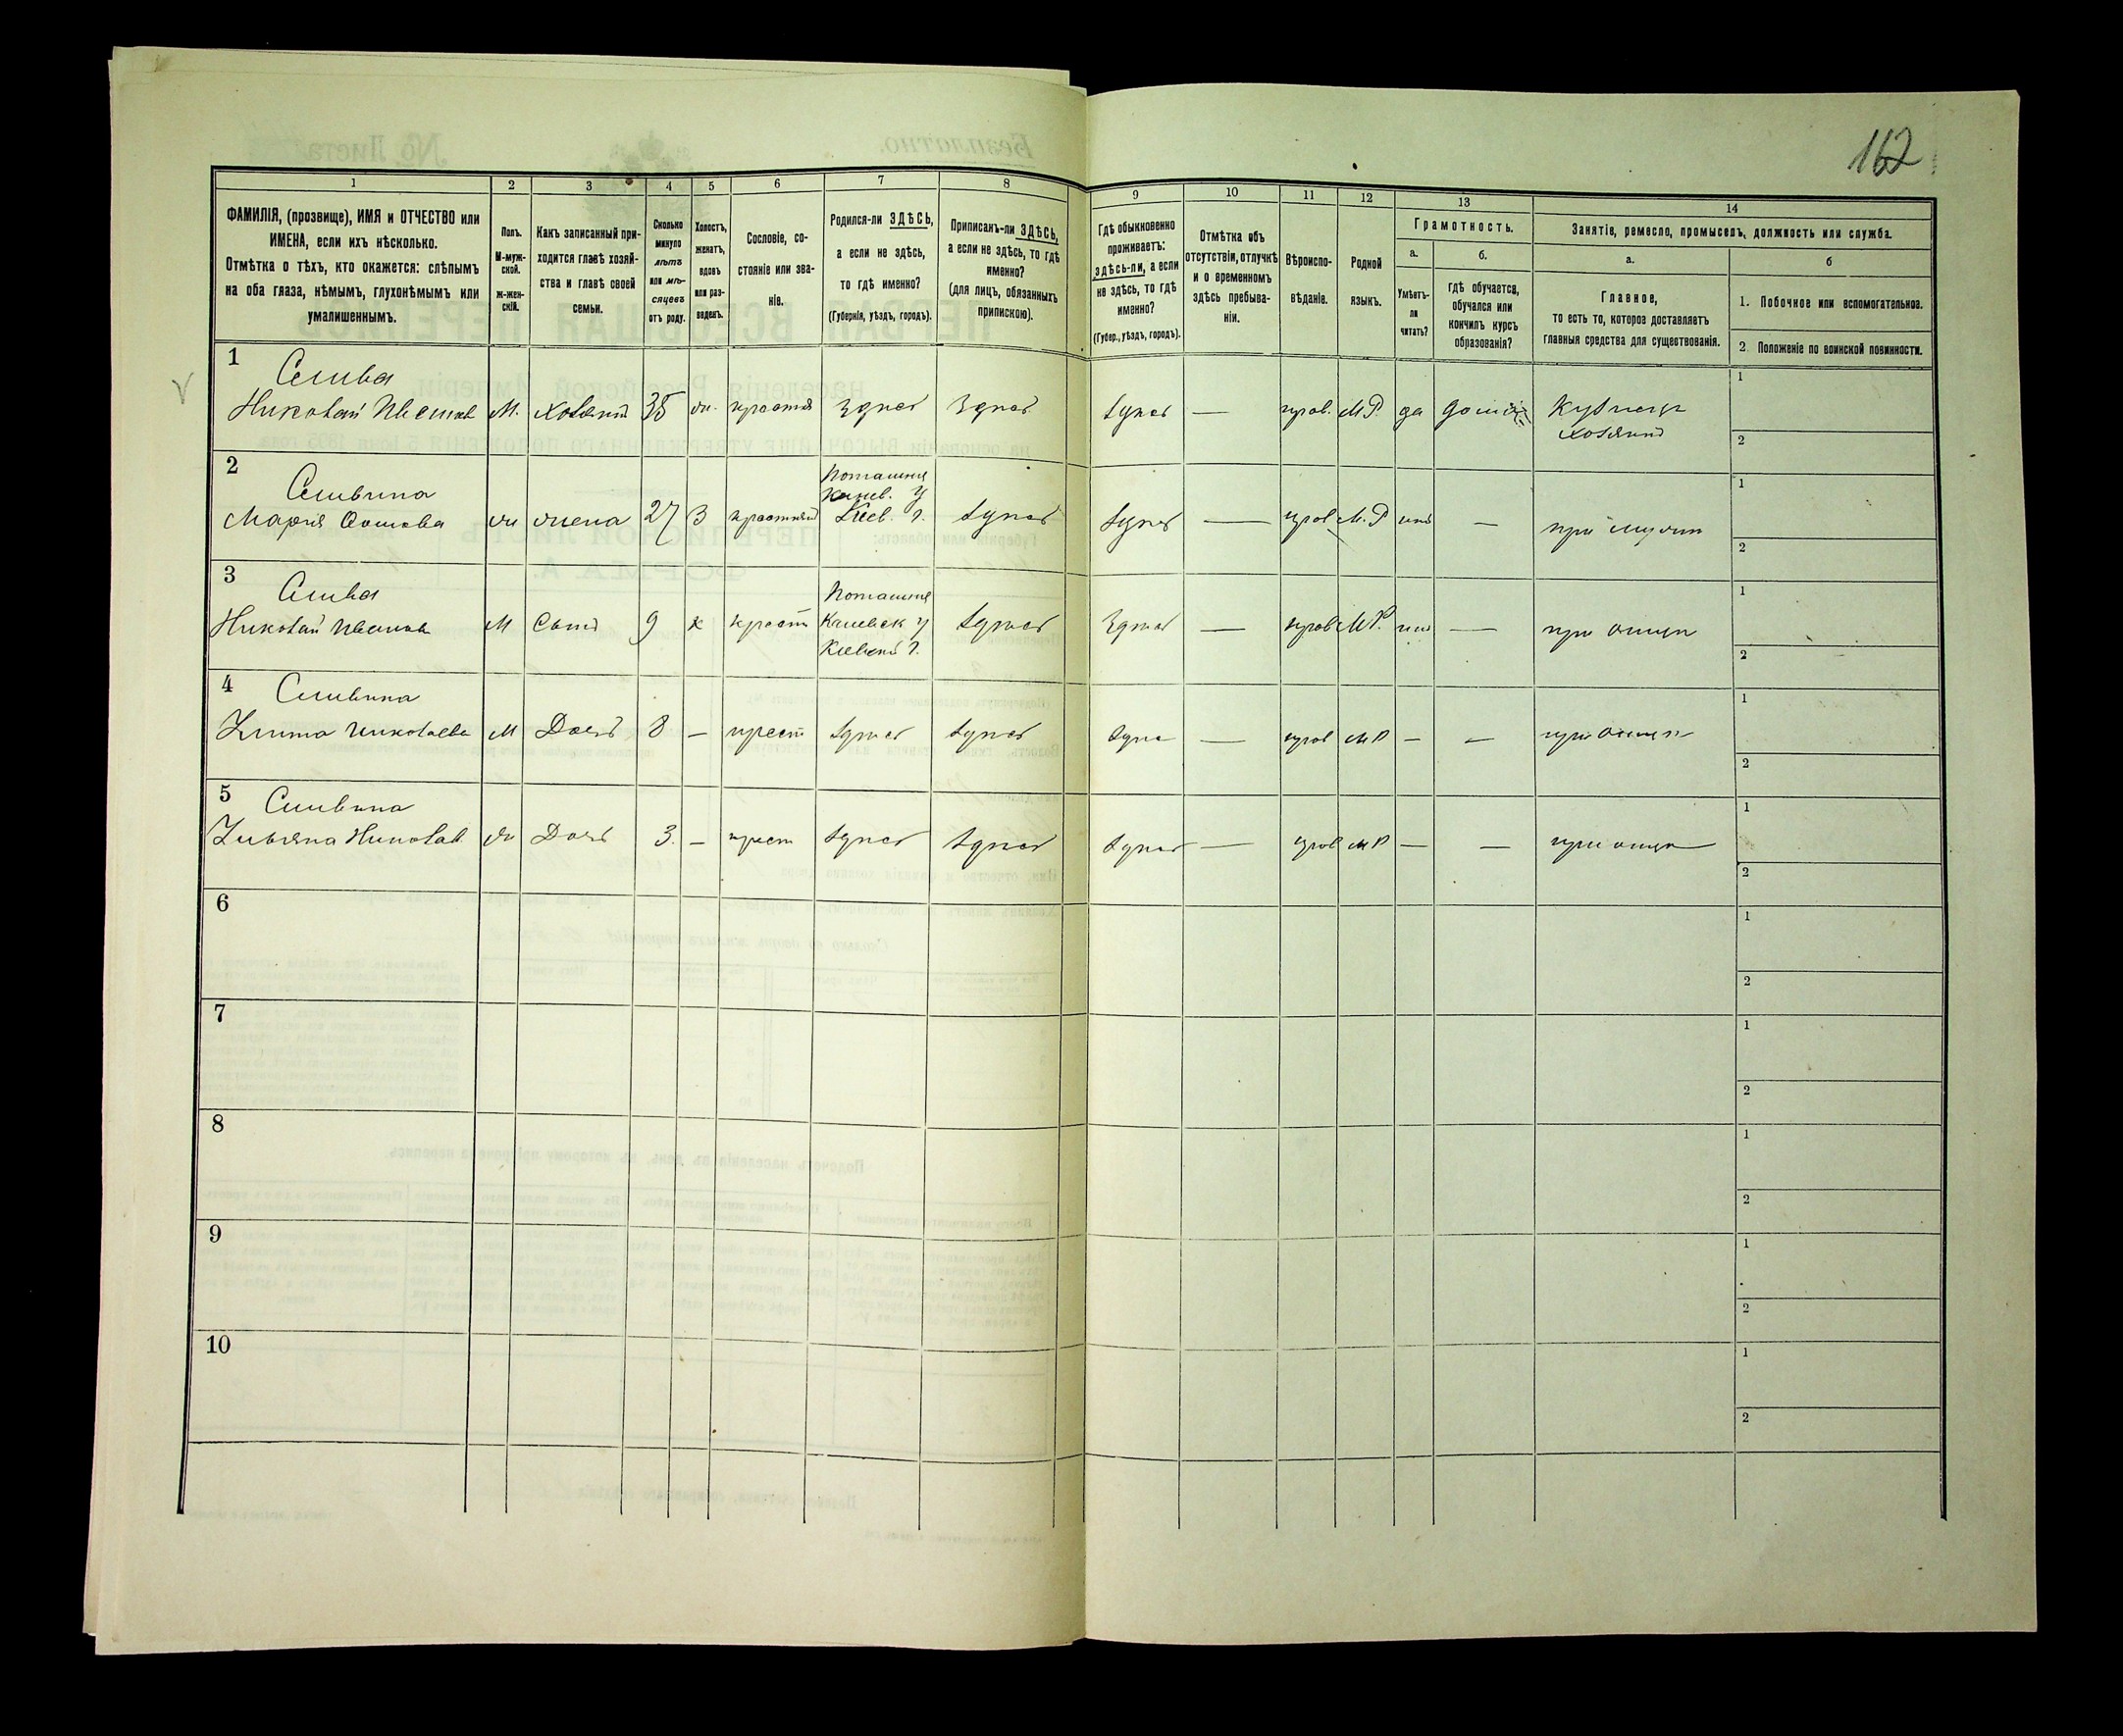 162
1 2 3 4 5 6 7 8 9 10 11 12 13 14
ФАМИЛІЯ, (прозвище), ИМЯ и ОТЧЕСТВО или
ИМЕНА, если ихъ нѣсколько.
Отмѣтка о тѣхъ, кто окажется: слѣпымъ
на оба глаза, нѣмымъ, глухонѣмымъ или
умалишеннымъ.
Полъ.
М-муж-
ской.
Ж-жен-
скій.
Какъ записанный при-
ходится главѣ хозяй-
ства и главѣ своей
семьи.
Сколько
минуло
лѣтъ
или мѣ-
сяцевъ
отъ роду.
Холостъ,
женатъ,
вдовъ
или раз-
веденъ.
Сословіе, со-
стояніе или зва-
ніе.
Родился-ли ЗДѢСЬ,
а если не здѣсь,
то гдѣ именно?
(Губернія, уѣздъ, городъ).
Приписанъ-ли ЗДѢСЬ,
а если не здѣсь, то гдѣ
именно?
(для лицъ, обязанныхъ
припискою).
Гдѣ обыкновенно
проживаетъ:
здѣсь-ли, а если
не здѣсь, то гдѣ
именно?
(Губер., уѣздъ, городъ).
Отмѣтка объ
отсутствіи, отлучкѣ
и о временномъ
здѣсь пребыва-
ніи.
Вѣроиспо-
вѣданіе.
Родной
языкъ.
Грамотность.
а.
Умѣетъ-
ли
читать?
б.
гдѣ обучается,
обучался или
кончилъ курсъ
образованія?
Занятіе, ремесло, промыселъ, должность или служба.
а.
Главное,
то есть то, которое доставляетъ
главныя средства для существованія.
б
1. Побочное или вспомогательное.
2 Положеніе по воинской повинности.
1
Слива
Николай М. хозяинъ 35 ж. здѣсь здѣсь здѣсь — прав. М.Р. да
Кузнецъ
хозяинъ
1
2
2
Сливина
Мария ж жена 27 З
Поташня
Канев. у
Киев. г. здѣсь здѣсь — прав М.Р —
при мужи
1
2
3
Слива
Николай М Сынъ 9 х крест
Поташня
Каневск у
Киевской г. здѣсь здѣсь — прав М.Р. —
при отцѣ
1
2
4
Сливина
Николаева М Дочь 8 — крест здѣсь здѣсь — прав МР — —
при отцѣ
1
2
5
Сливина
Ульяна Николав. ж Дочь 3. — крест здѣсь здѣсь здѣсь — прав МР — —
при отцѣ
1
2
6
1
2
7
1
2
8
1
2
9
1
2
10
1
2